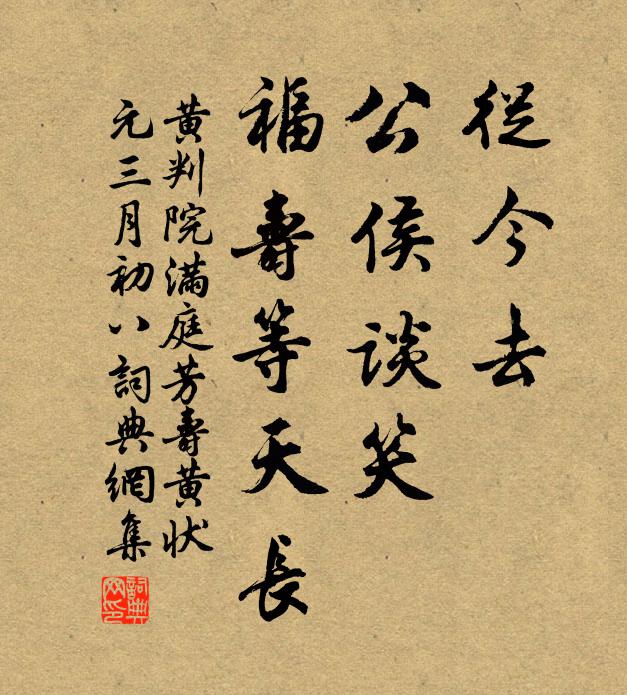 從今去
公侯談笑
福壽等天長
黄判院滿庭芳壽黄状
元三月初八詞典網集
詞典
网印